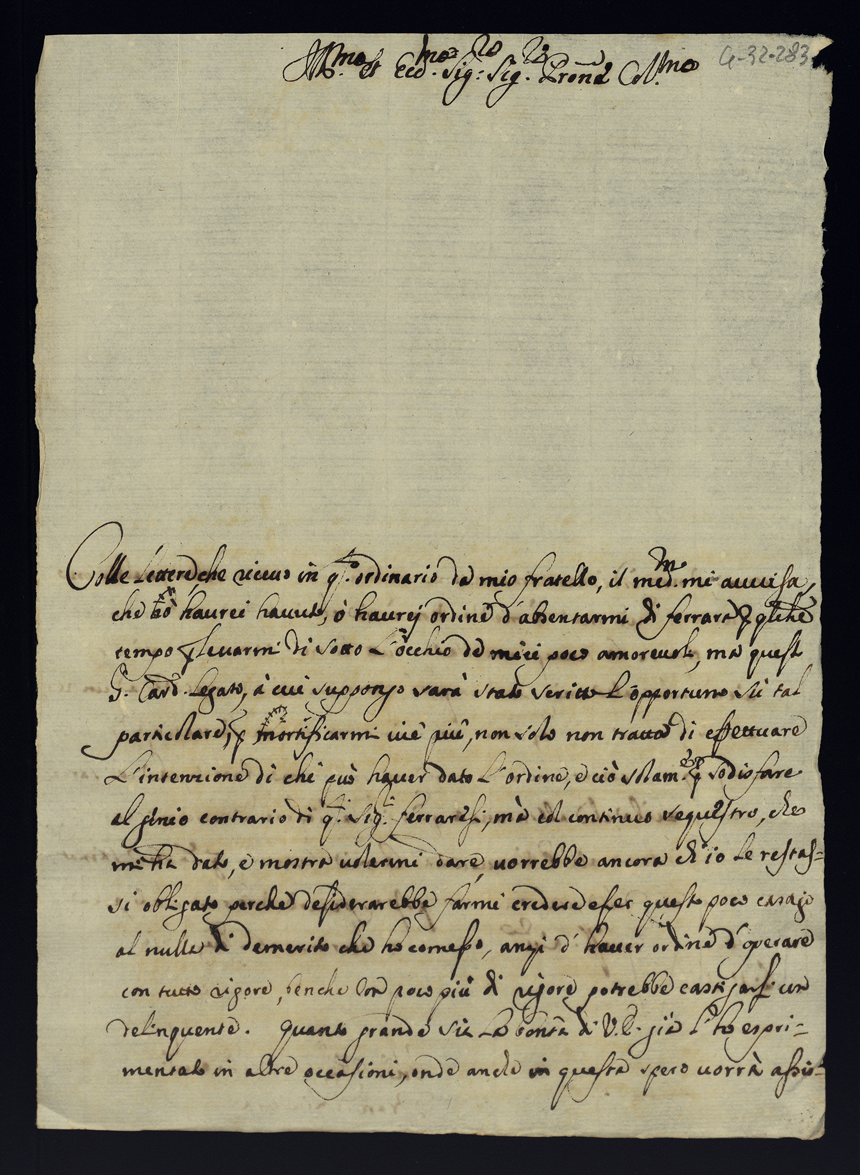 Ill.mo et Ecc.mo Sig.r Sig.r Pron.e Col.mo
G-32-283
Colle lettere che riceuo in q.to ordinario da mio fratello, il med.mo mi auuisa,
che haurei hauuto, ò haurej ordine d'absentarmi di ferrara p qlche
tempo p leuarmi di sotto l'occhio de miei poco amoreuoli, ma questo
S. Card. Legato, à cui suppongo sarà stato scritto l'opportuno sù tal
particolare, p mortificarmi uie più, non solo non tratta di effettuare
l'intenzione di chi può hauer dato l'ordine, e ciò solam.te p sodisfare
al genio contrario di q.ti Sig.ri ferraresi, mà col continuo sequestro, che
m'hà dato, e mostra uolermi dare, uorrebbe ancora ch'io le restas=
si obligato perche desiderarebbe farmi credere esser questo poco castigo
al nulla di demerito che hò comesso, anzi d'hauer ordine d'operare
con tutto rigore, benche con poco più di rigore potrebbe castigarsi un
delinquente. Quanto grande sia la bontà di V.E. già l'hò espri=
mentato in altre occasioni, onde anche in questa spero uorrà assis=